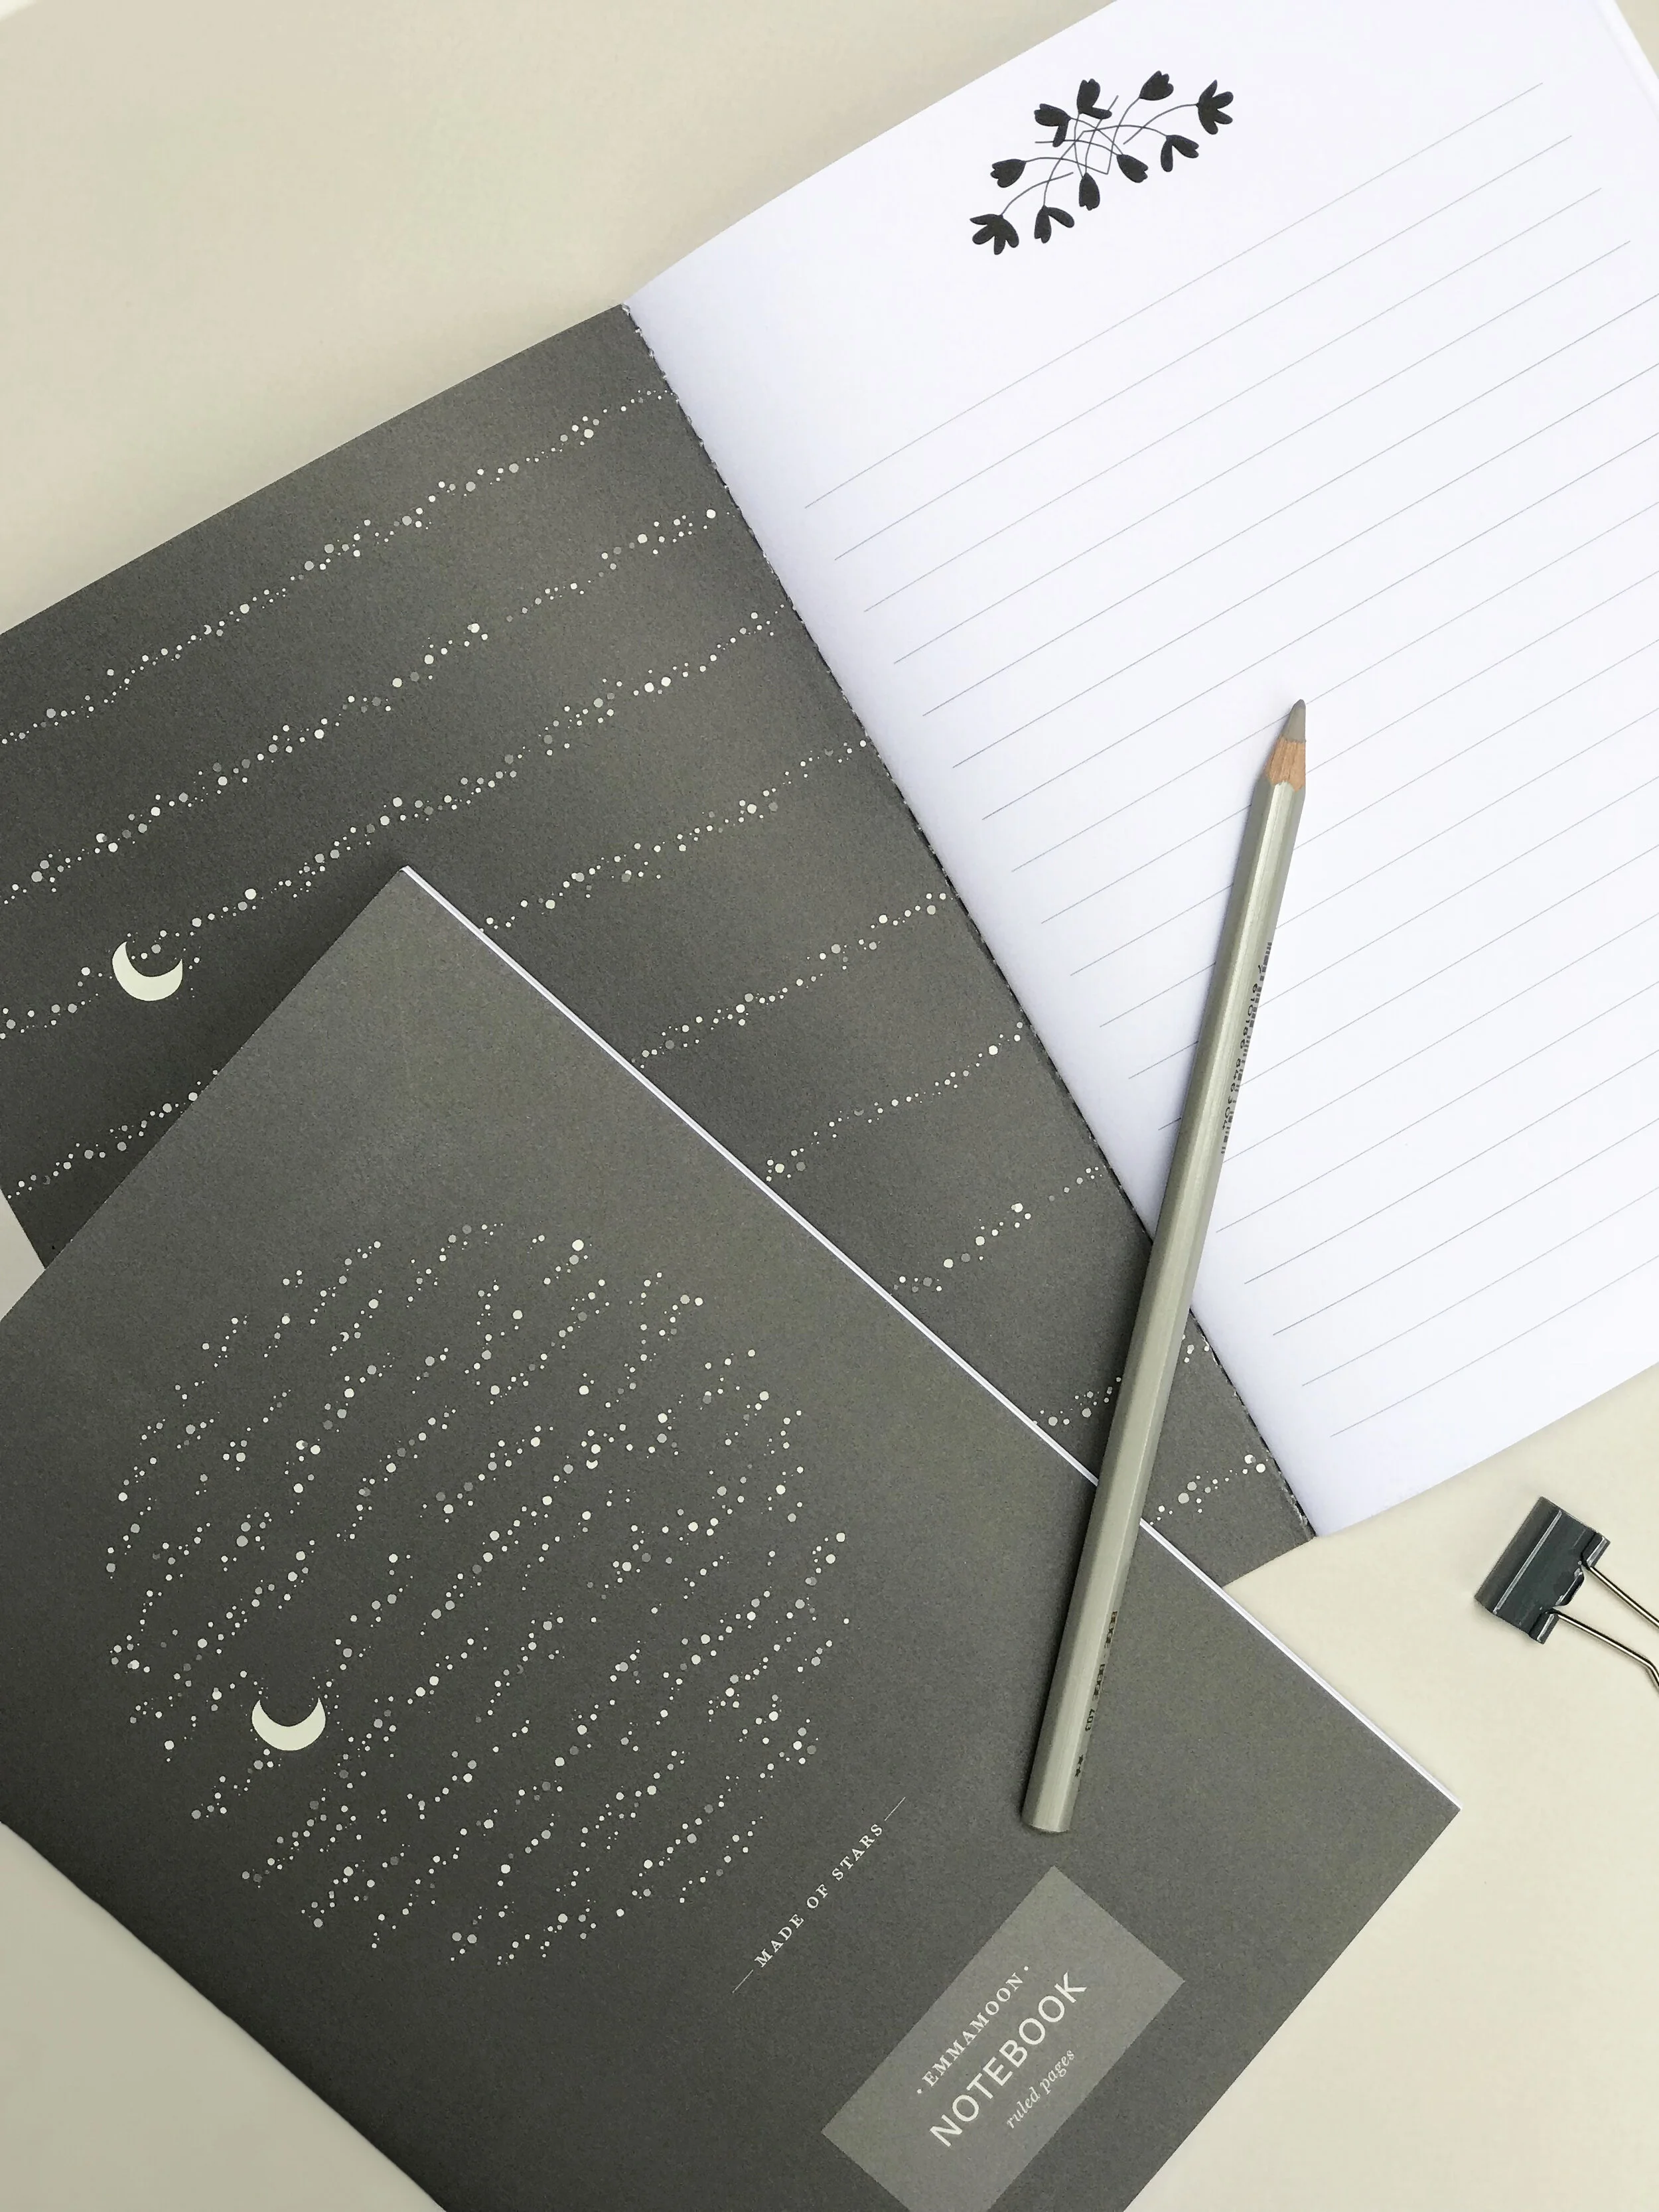 MADE OF STARS
• EMMAMOON •
NOTEBOOK
ruled pages